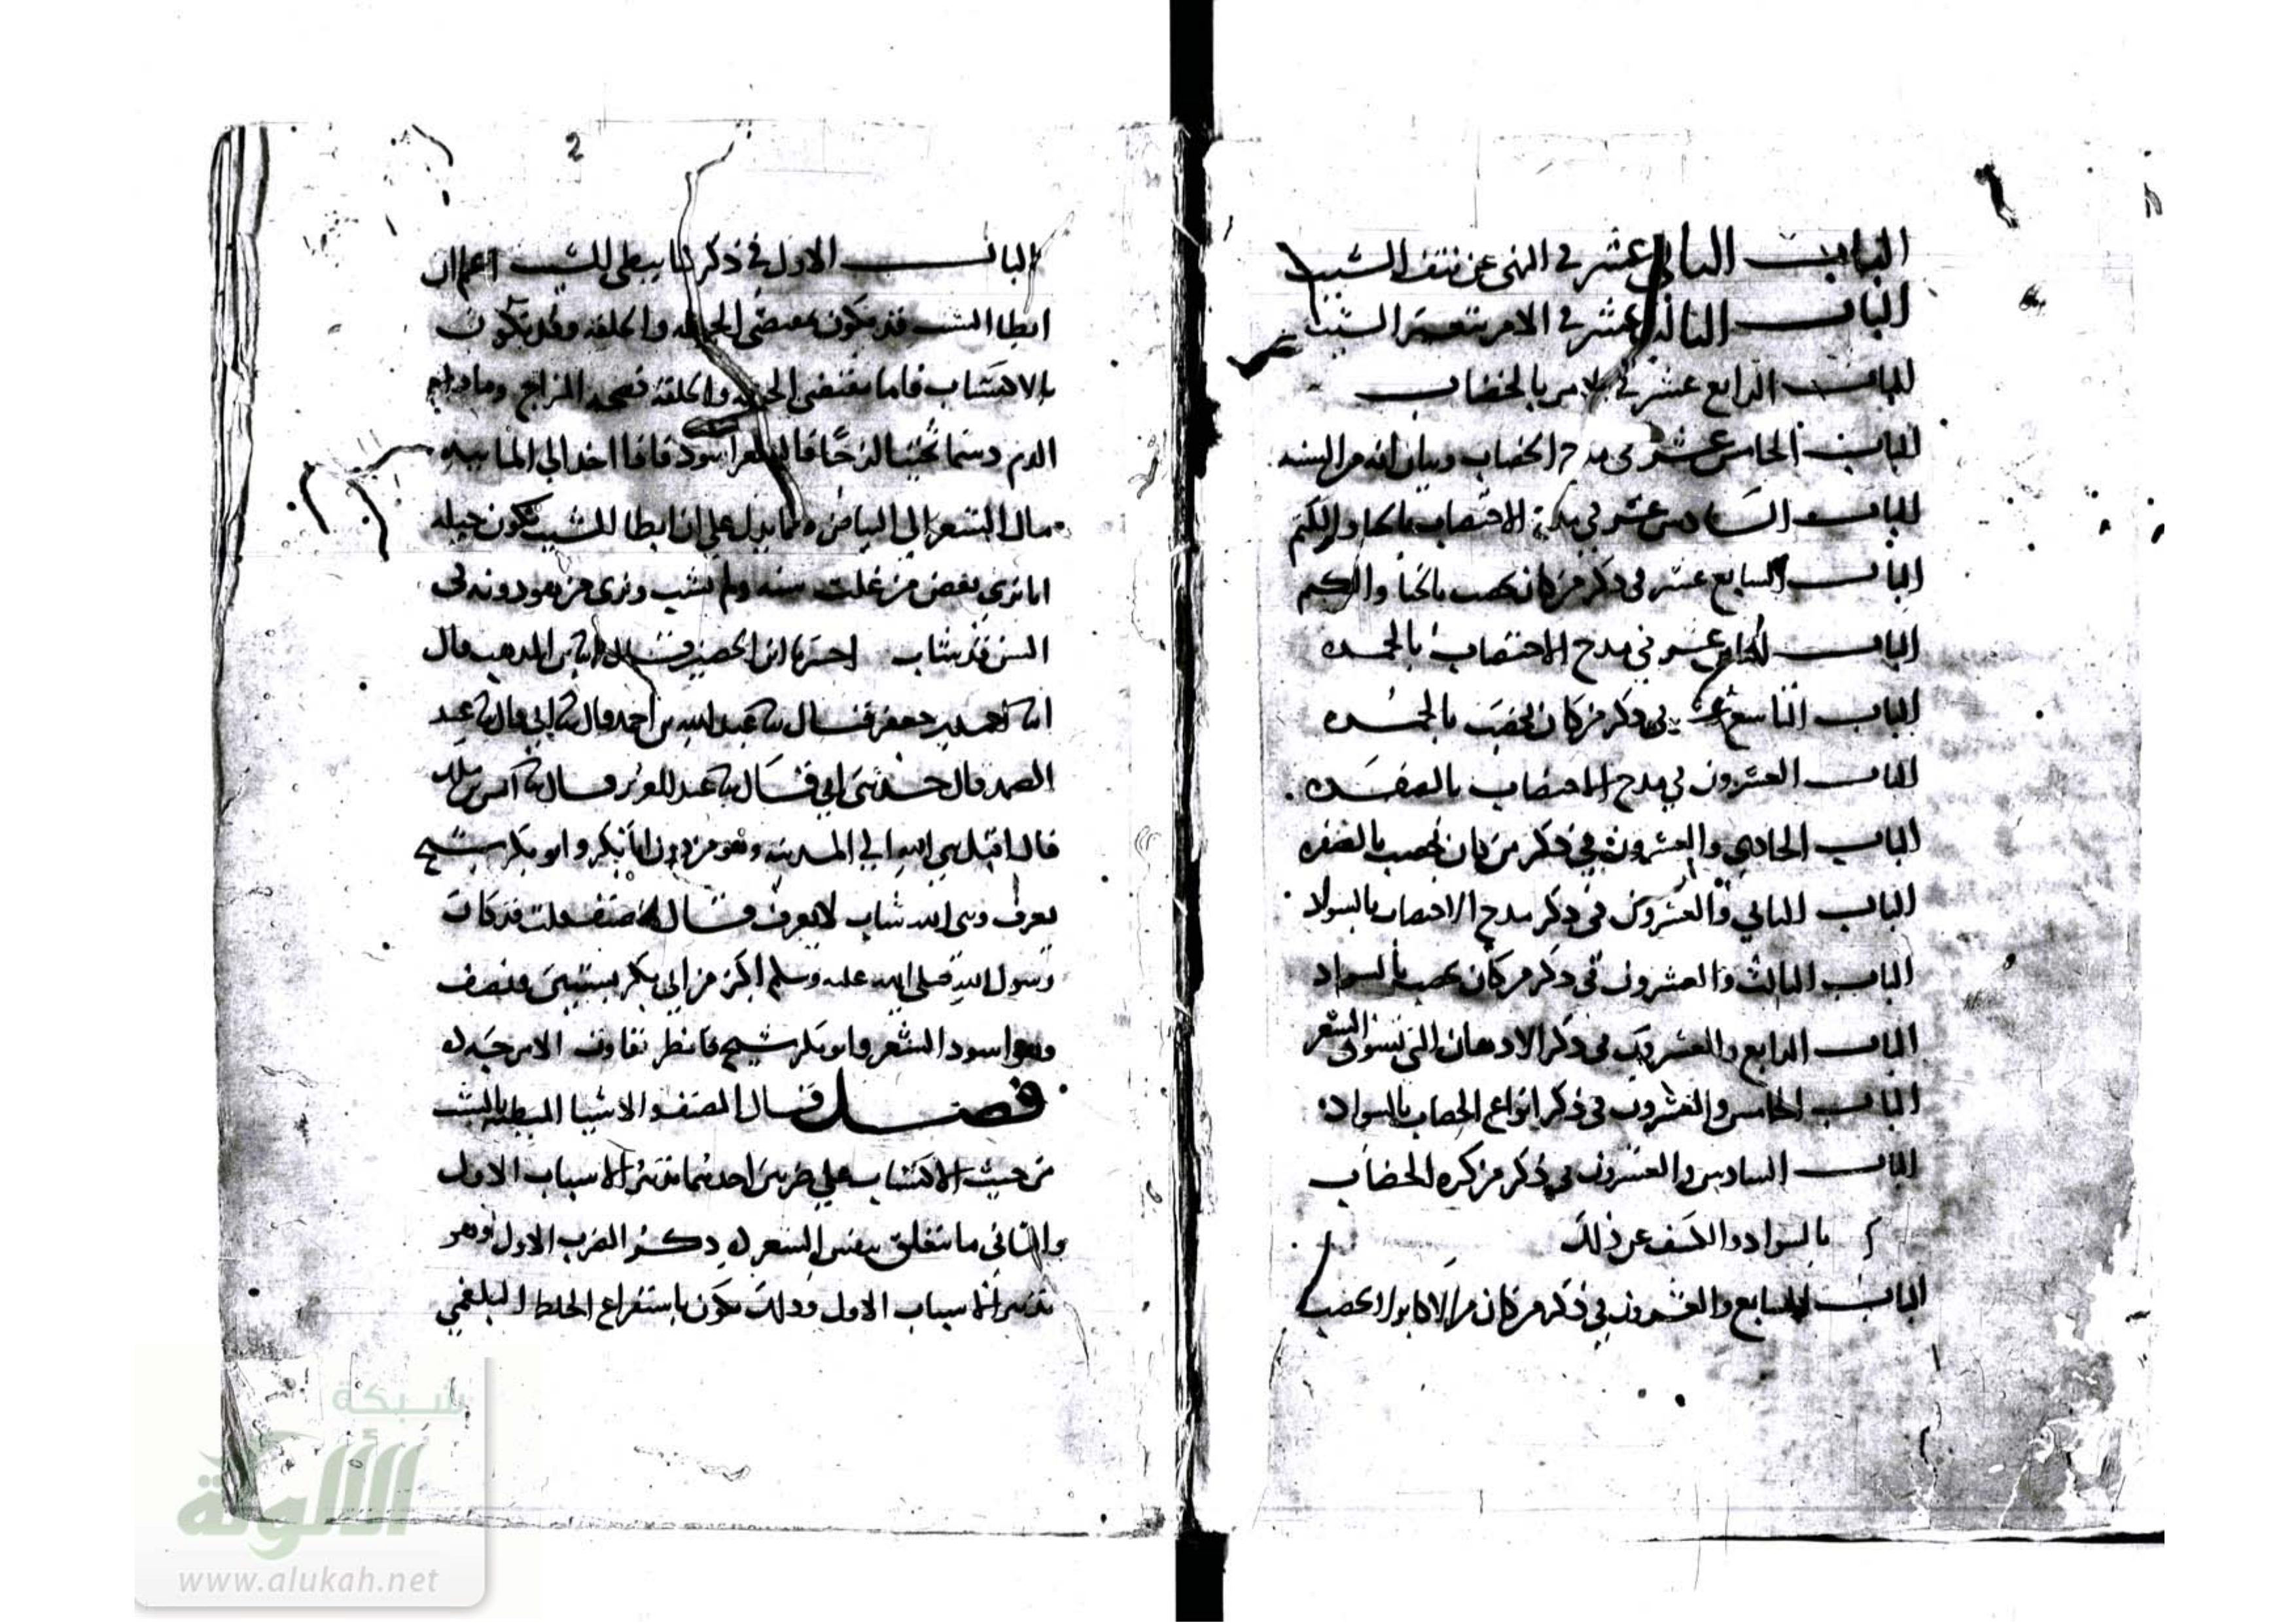 الباب الثاني عشر في النهي عن نتف الشيب
الباب الثالث عشر في الامر بتغيير الشيب
الباب الرابع عشر في الامر بالخضاب
الباب الخامس عشر في مدح الخضاب وبيان انه من السنه
الباب السادس عشر في مدح الاختضاب بالحنا والكتم
الباب السابع عشر في ذكر من كان يخضب بالحنا والكتم
الباب الثامن عشر في مدح الاختضاب بالحمره
الباب التاسع عشر في ذكر من كان يخضب بالحمره
الباب العشرون في مدح الاختضاب بالصفره
الباب الحادي والعشرون في ذكر من كان يخضب بالصفره
الباب الثاني والعشرون في ذكر مدح الاختضاب بالسواد
الباب الثالث والعشرون في ذكر من كان يخضب بالسواد
الباب الرابع والعشرون في ذكر الادهان التي تسود الشعر
الباب الخامس والعشرون في ذكر انواع الخضاب بالسواد
الباب السادس والعشرون في ذكر من كره الخضاب
بالسواد والكشف عن ذلك
الباب السابع والعشرون في ذكر من كان من الاكابر لا يخضب
2
الباب الاول في ذكر ما يبطي الشيب اعلم ان
ابطا الشيب قد يكون بمقتضى الجبله والخلقه وقد يكون
بالاكتساب فاما مقتضى الجبله والخلقه فصحه المزاج وما دام
الدم دسما ثخينا لزجا فالشعر اسود فاذا اخذ الي المائيه
مال الشعر الي البياض ومما يدل علي ان ابطا الشيب يكون جبله
انا نري بعض من علت سنه ولم يشب ونري من هو دونه في
السن قد شاب اخبرنا ابن الحصين قال انا ابن المذهب قال
انا احمد بن جعفر قال نا عبد الله بن احمد قال نا ابي قال نا عبد
الصمد قال حدثني ابي قال نا عبد العزيز قال نا انس بن مالك
قال اقبل نبي الله الي المدينه وهو مردف ابا بكر وابو بكر شيخ
يعرف ونبي الله شاب لا يعرف قال المصنف قلت قد كان
رسول الله صلى الله عليه وسلم اكبر من ابي بكر بسنتين ونصف
وهو اسود الشعر وابو بكر شيخ فانظر تفاوت الامر جبله
فصل قال المصنف والاشيا المبطيه بالشيب
من حيث الاكتساب علي ضربين احدهما تدبير الاسباب الاول
والثاني ما يتعلق بنفس الشعر ذكر الضرب الاول وهو
تدبير الاسباب الاول وذلك يكون باستفراغ الخلط البلغمي
شبكة
الألوكة
www.alukah.net